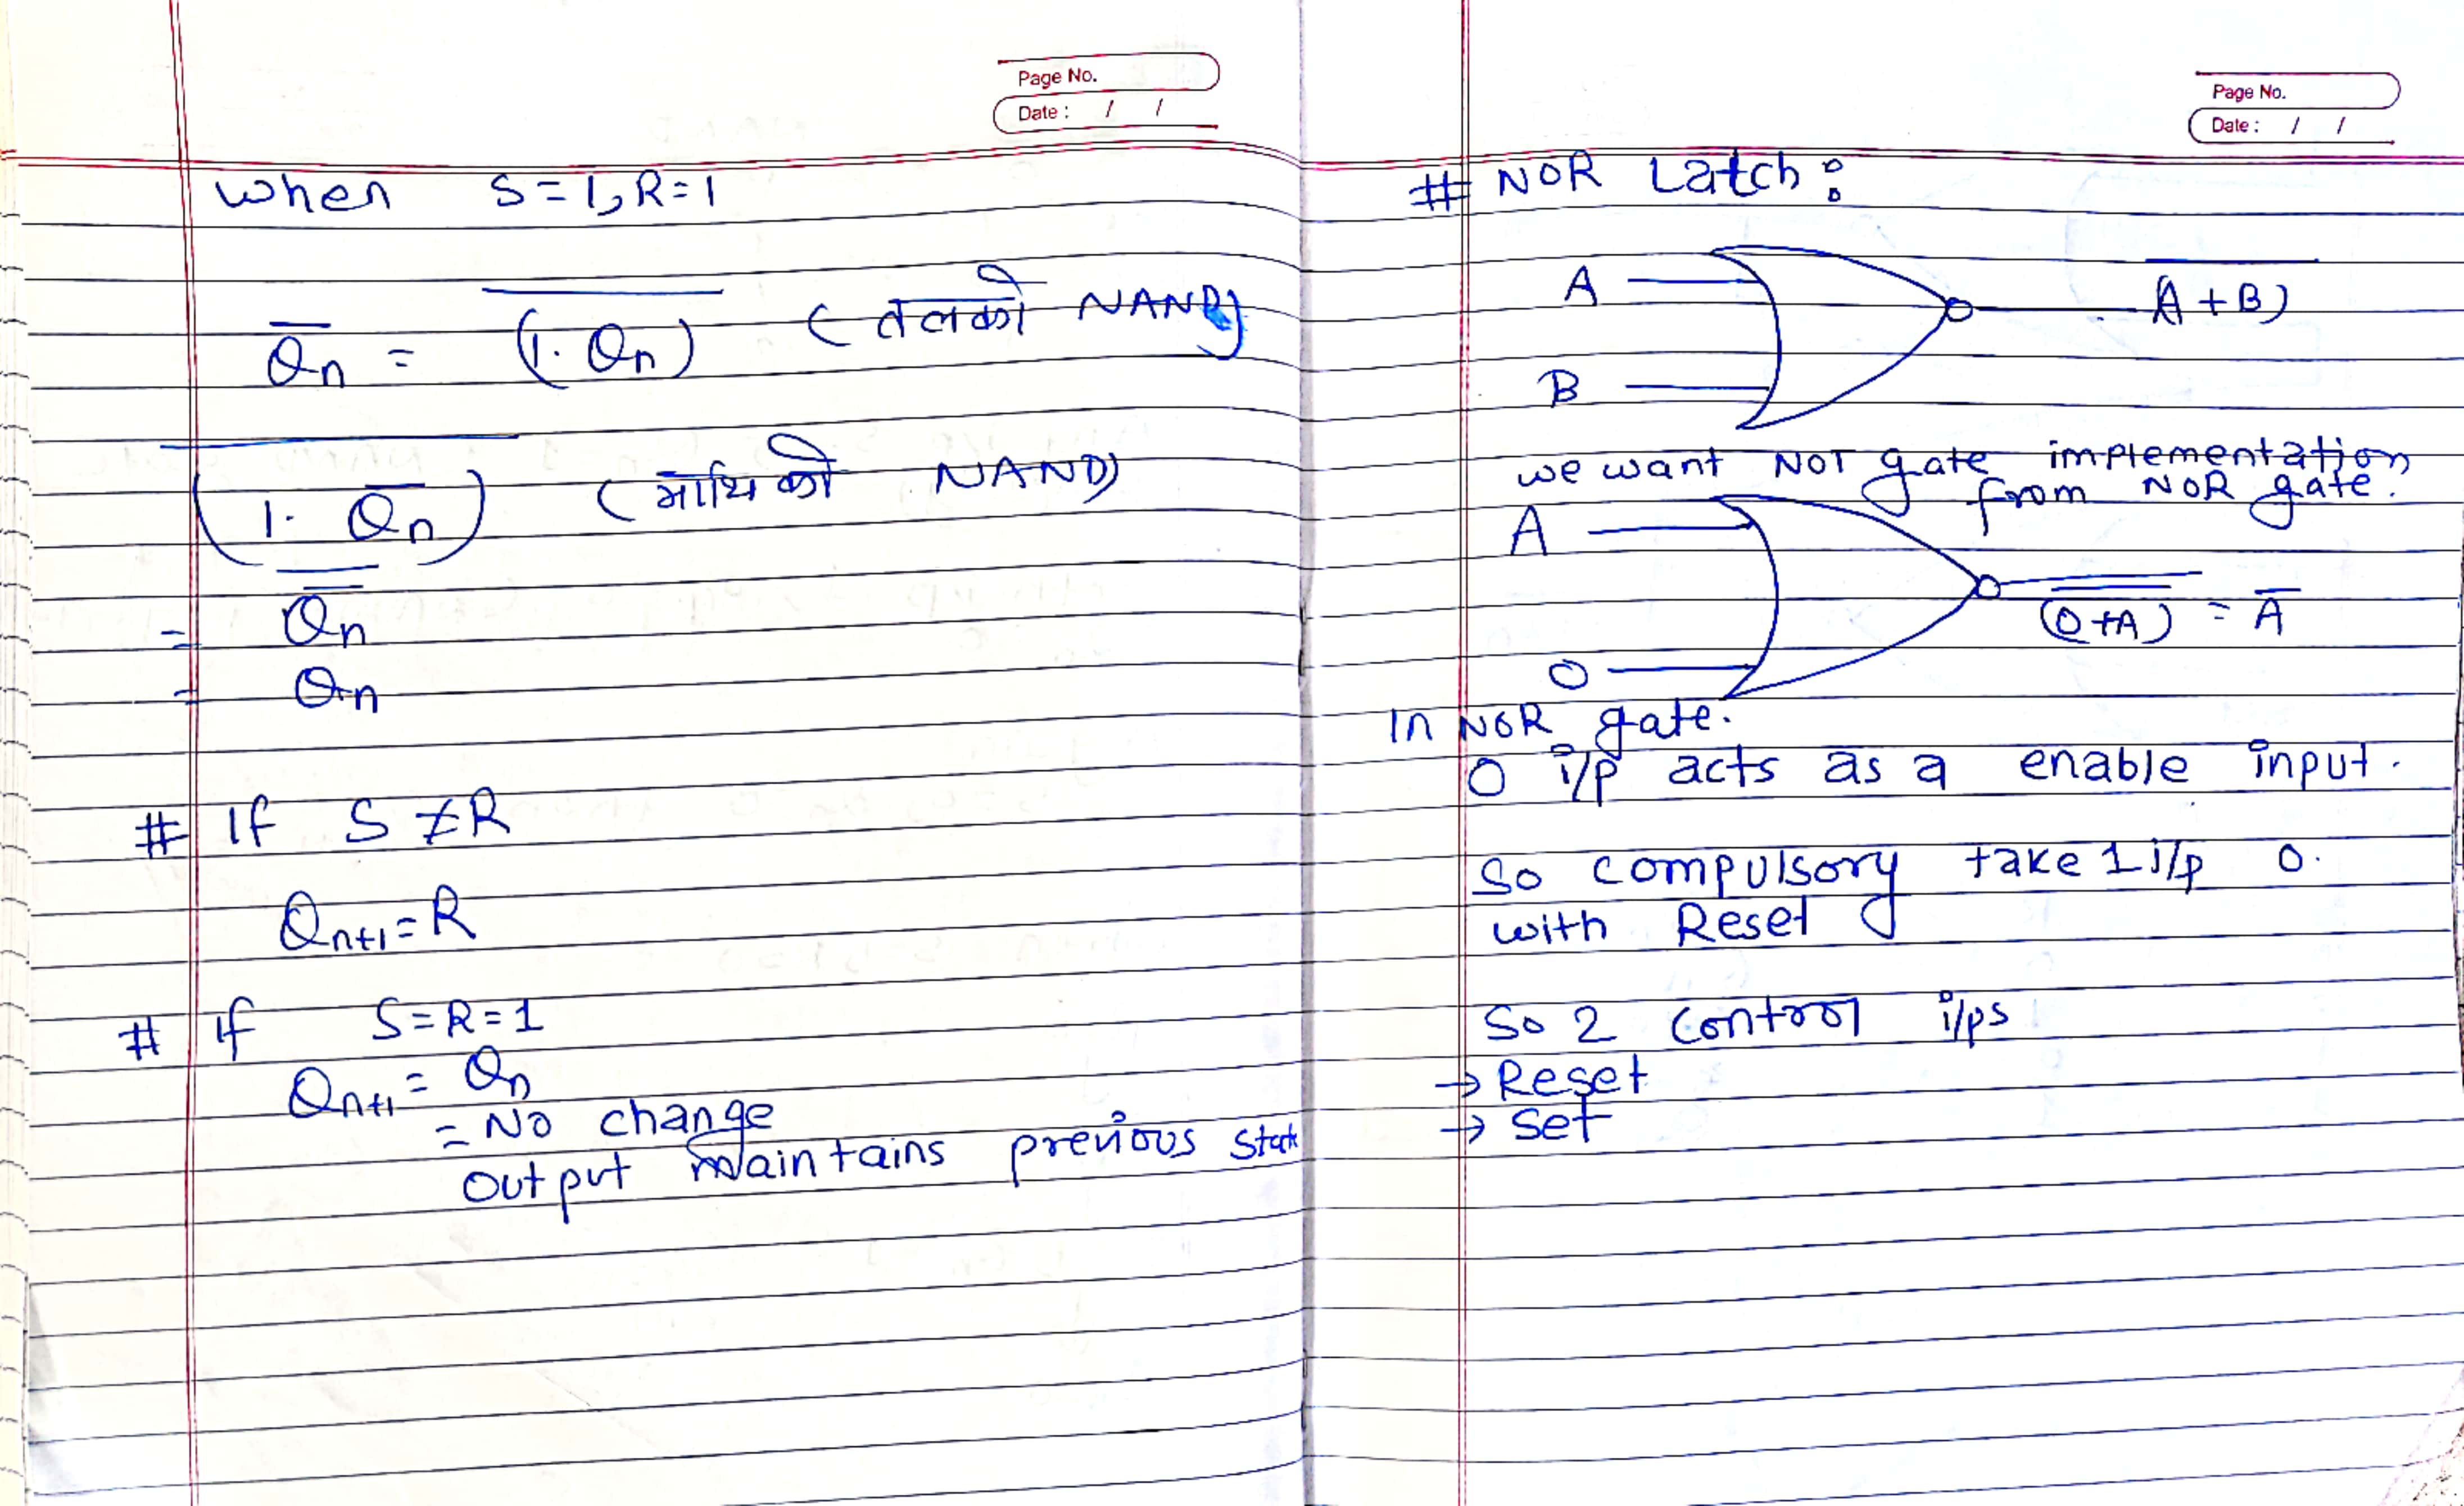 Page No.
Date : / /
when S=1, R=1
Q̅n = \overline{(1. Qn)} ( तलको NAND)
\overline{(1. Q̅n)} ( माथिको NAND)
= \overline{\overline{Qn}}
= Qn
# If S ≠ R
Qn+1 = R
# if S=R=1
Qn+1 = Qn
= No change
output maintains previous state
Page No.
Date : / /
# NOR Latch :
A
\overline{(A + B)}
B
we want NOT gate implementation
from NOR gate.
A
\overline{(0+A)} = A̅
0
In NOR gate.
0 i/p acts as a enable input.
So compulsory take 1 i/p 0.
with Reset
So 2 control i/ps
→ Reset
→ Set